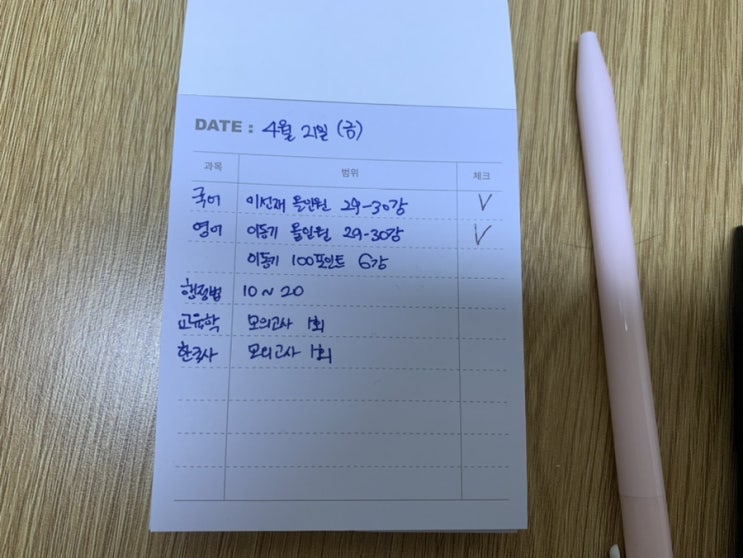 DATE : 4월 21일 (금)
과목 범위 체크
국어 이선재 올인원 29-30강 V
영어 이동기 올인원 29-30강 V
이동기 100포인트 6강
행정법 10 ~ 20
교육학 모의고사 1회
한국사 모의고사 1회